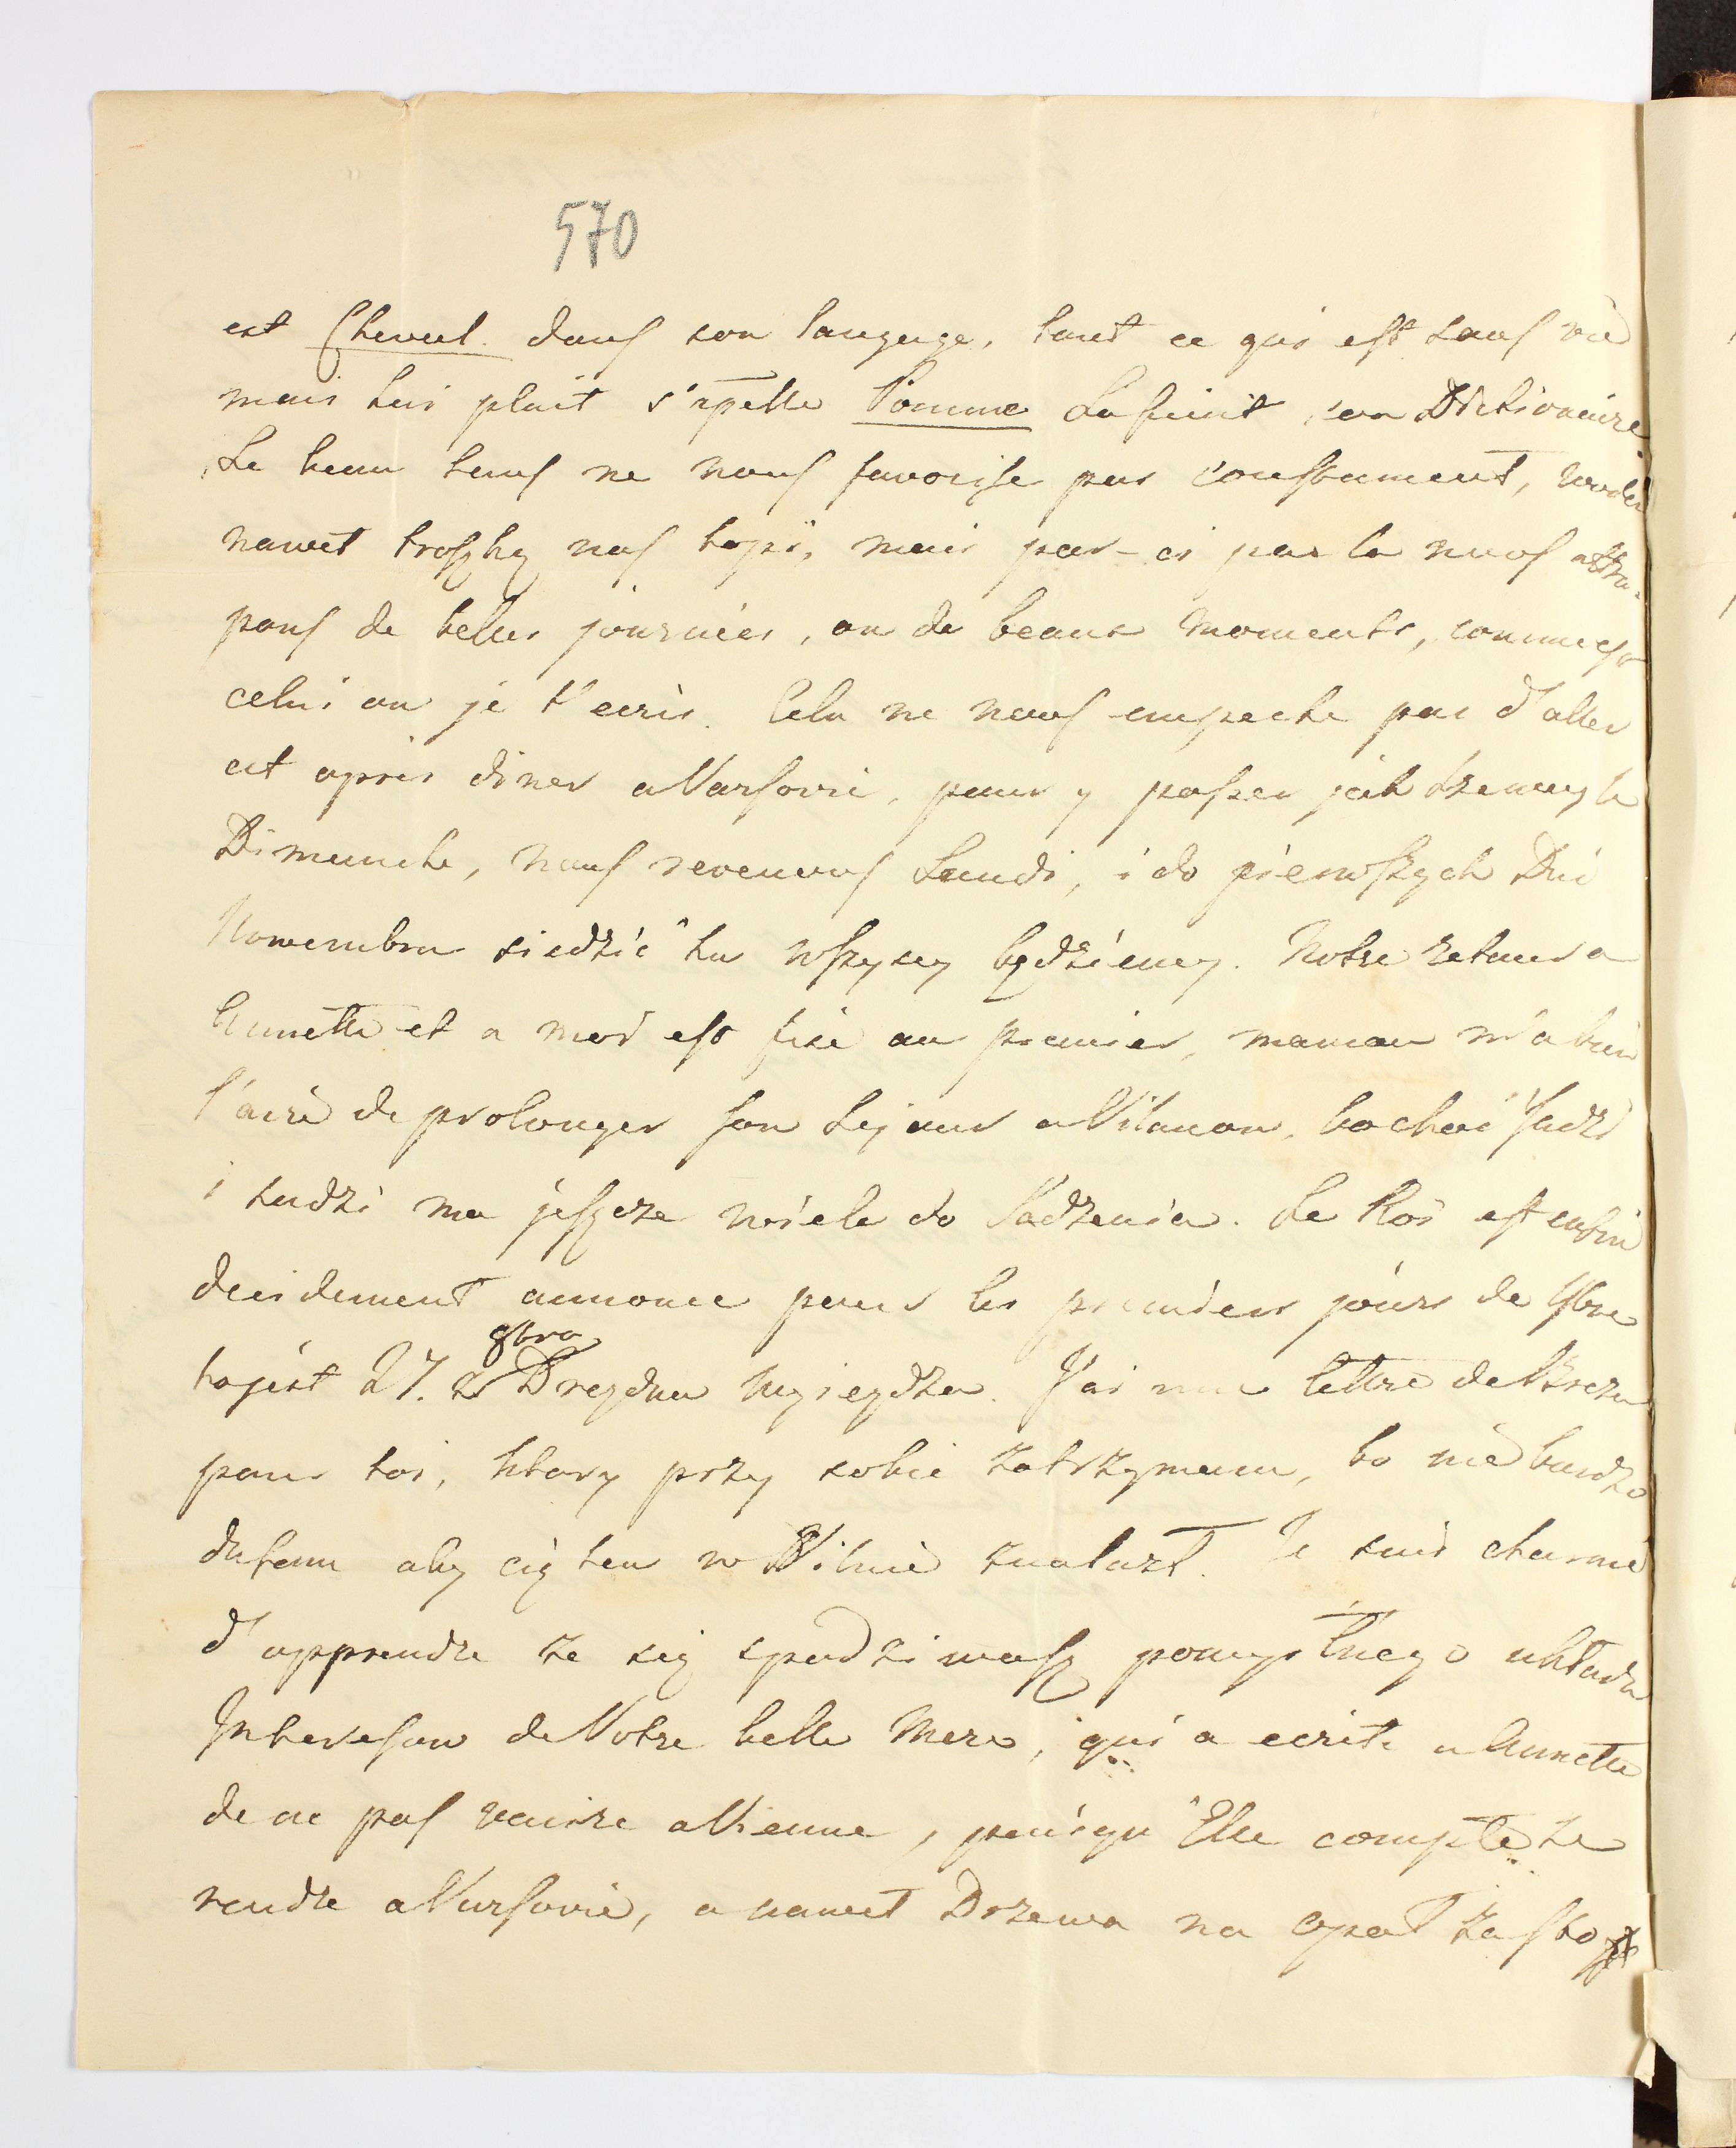 570
est Cheval dans son langage, tout ce qui est sans vie
mais lui plait s'apelle Pomme La finit son Dictionaire
Le beau tems ne nous favorise pas constament, woda
nawet troszkę nas topi, mais par-ci par la nous attra-
pons de belles journées, ou de beaux moments, comme est
celui ou je t'ecris. Cela ne nous empeche pas d'aller
cet après diner a Varsovie, pour y passer jak trzemy le
Dimanche, nous revenons Lundi, i do piérwszych Dni
Nowembra siedzić tu wszyscy będziémy. Notre retour a
Annette et a moi est fixé au premier, maman m'a bien
l'airè de prolonger son Sejour a Vilanow, bo choć Sadzi
i sadzi ma jeszcze wiele do Sadzenia. Le Roi est enfin
decidement annoncé pour les premiers jours de 9bre
to jest 27. 8bra z Drezdna wyiezdża. J'ai une lettre de
pour toi, ktory przy sobie zatrzymam, bo nié bardzo
dufam aby cię ten w Wilnié znalazł. Je suis charmé
d'apprendre że się spodziwasz pomyślnego układu
Interesow de Votre belle Mere, qui a ecrite a Annette
de ne pas venire a Vienne, puisqu'Elle compte se
rendre a Varsovie, a nawet Drzewa na opał